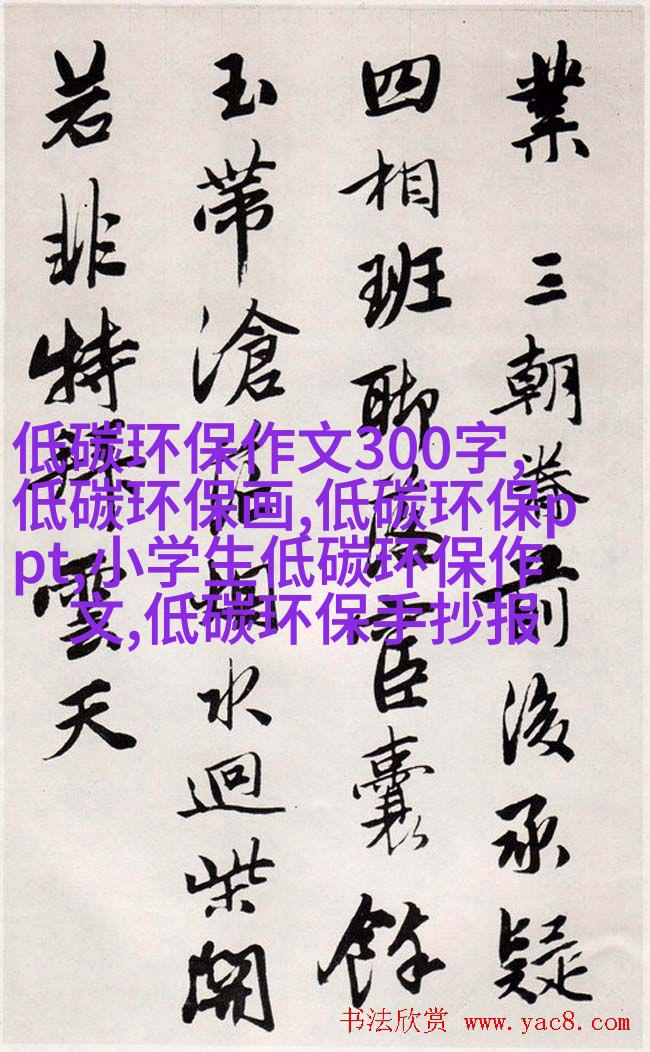 業 三朝前後承疑
四相班聊臣囊餘
玉帶滄水迴柴開
若非特雲天
低碳环保作文300字,
低碳环保画,低碳环保p
pt,小学生低碳环保作
文,低碳环保手抄报
书法欣赏 www.yac8.com